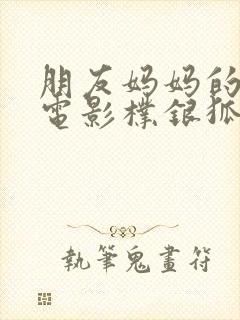 朋友妈妈的
電影檏銀狐
執筆鬼畫符